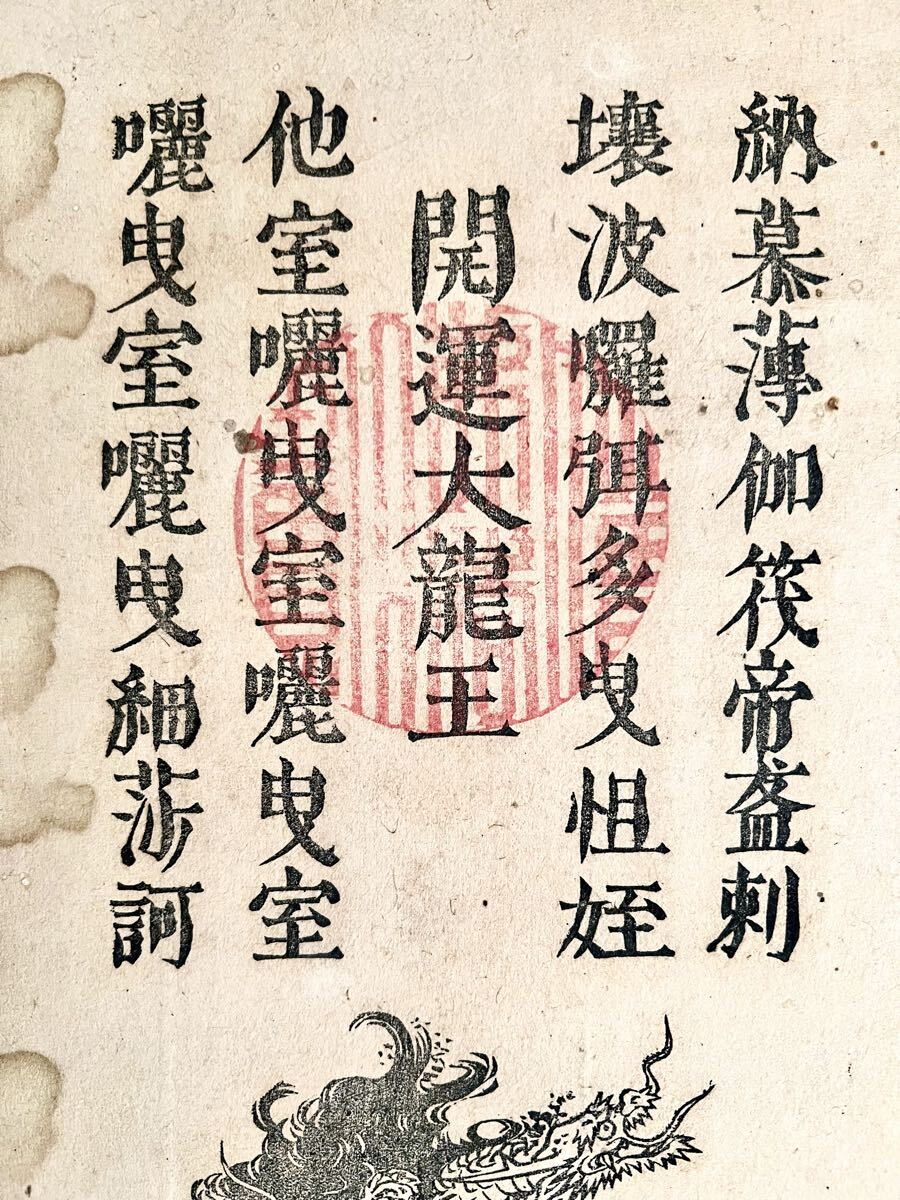 納慕薄伽筏帝盋剌
壤波囉弭多曳怛姪
開運大龍王
他室囇曳室囇曳室
囇曳室囇曳細莎訶